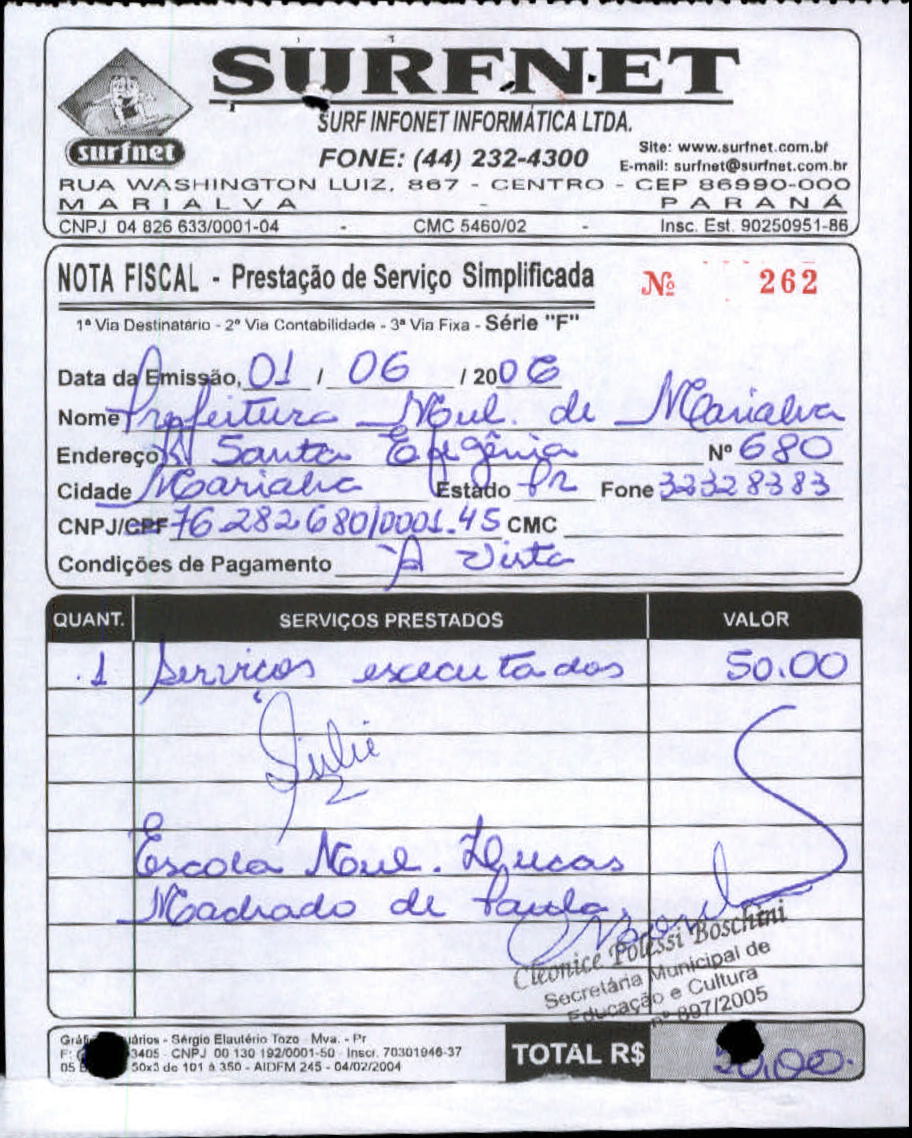 SURFNET
SURF INFONET INFORMÁTICA LTDA.
surfnet
FONE: (44) 232-4300
Site: www.surfnet.com.bf
E-mail: surfnet@surfnet.com.br
RUA WASHINGTON LUIZ, 867 - CENTRO - CEP 86990-000
MARIALVA - PARANÁ
CNPJ 04 826 633/0001-04 - CMC 5460/02 - Insc. Est. 90250951-86
NOTA FISCAL - Prestação de Serviço Simplificada Nº 262
1ª Via Destinatário - 2ª Via Contabilidade - 3ª Via Fixa - Série "F"
Data da Emissão, 01 / 06 / 2006
Nome Prefeitura Mul. de Marialva
Endereço R Santa Efigênia Nº 680
Cidade Marialva Estado Pr Fone 32328383
CNPJ/CPF 76 282 680/0001.45 CMC
Condições de Pagamento A Vista
QUANT. SERVIÇOS PRESTADOS VALOR
1 Servicos executados 50.00
Escola Mul. Lucas
Machado de Paula
Cleonice Polessi Boschini
Secretária Municipal de
Educação e Cultura
nº 897/2005
- Sérgio Elautério Tozo - Mva. - Pr
3405 - CNPJ 00 130 192/0001-50 - Inscr. 70301946-37
05 50x3 de 101 à 350 - AIDFM 245 - 04/02/2004
TOTAL R$ 50,00